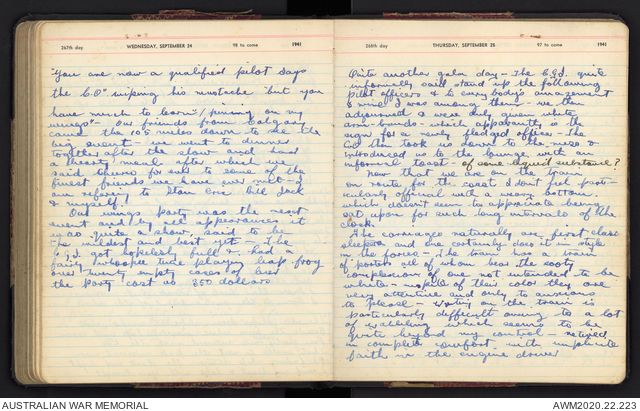 267th day WEDNESDAY, SEPTEMBER 24 98 to come 1941
"You are now a qualified pilot says
the CO" wiping his mustache "but you
have much to learn"/pinning on my
wings". Our friends from Calgary
came the 105 miles down to see the
big event - we went to dinner
together after the show and had
a hearty meal after which we
said cheerio for sure to some of the
finest friends we have ever met - I
am referring to Stan one Bill Jack
& myself!
Our wings party was the next
event and by all appearances it
was quite a show, said to be
the wildest and best yet - The
C.G.I. got hopelessly full - had a
fairly whoopee time playing leap frog
over twenty empty cases of beer
the party cost us 350 dollars
268th day THURSDAY, SEPTEMBER 25 97 to come 1941
Quite another gala day - The C.G.I. quite
informally said stand up the following
pilot officers & to everybody's amazement
& mine I was among them - we then
adjourned & were duly given white
arm-bands - which apparently is the
sign for a newly fledged officer - The
CO then took us down to the mess &
introduced us to the lounge with an
informal toast - of some liquid substance?
Now that we are on the train
en route for the coast I don't feel part-
icularly official with a weary bottom
which doesn't seem to appreciate being
sat upon for such long intervals of the
clock.
The carriages naturally are first class
sleepers and one certainly does it in style
in the forces - The train has a train
of porters all of whom bear the sooty
complexion of one not intended to be
white - most of their color they are
very attentive and only to anxious
to please - Writing on the train is
particularly difficult owing to a lot
of wobbling which seems to be
quite beyond my control - retired
in complete comfort with implicite
faith in the engine driver
AUSTRALIAN WAR MEMORIAL
AWM2020.22.223